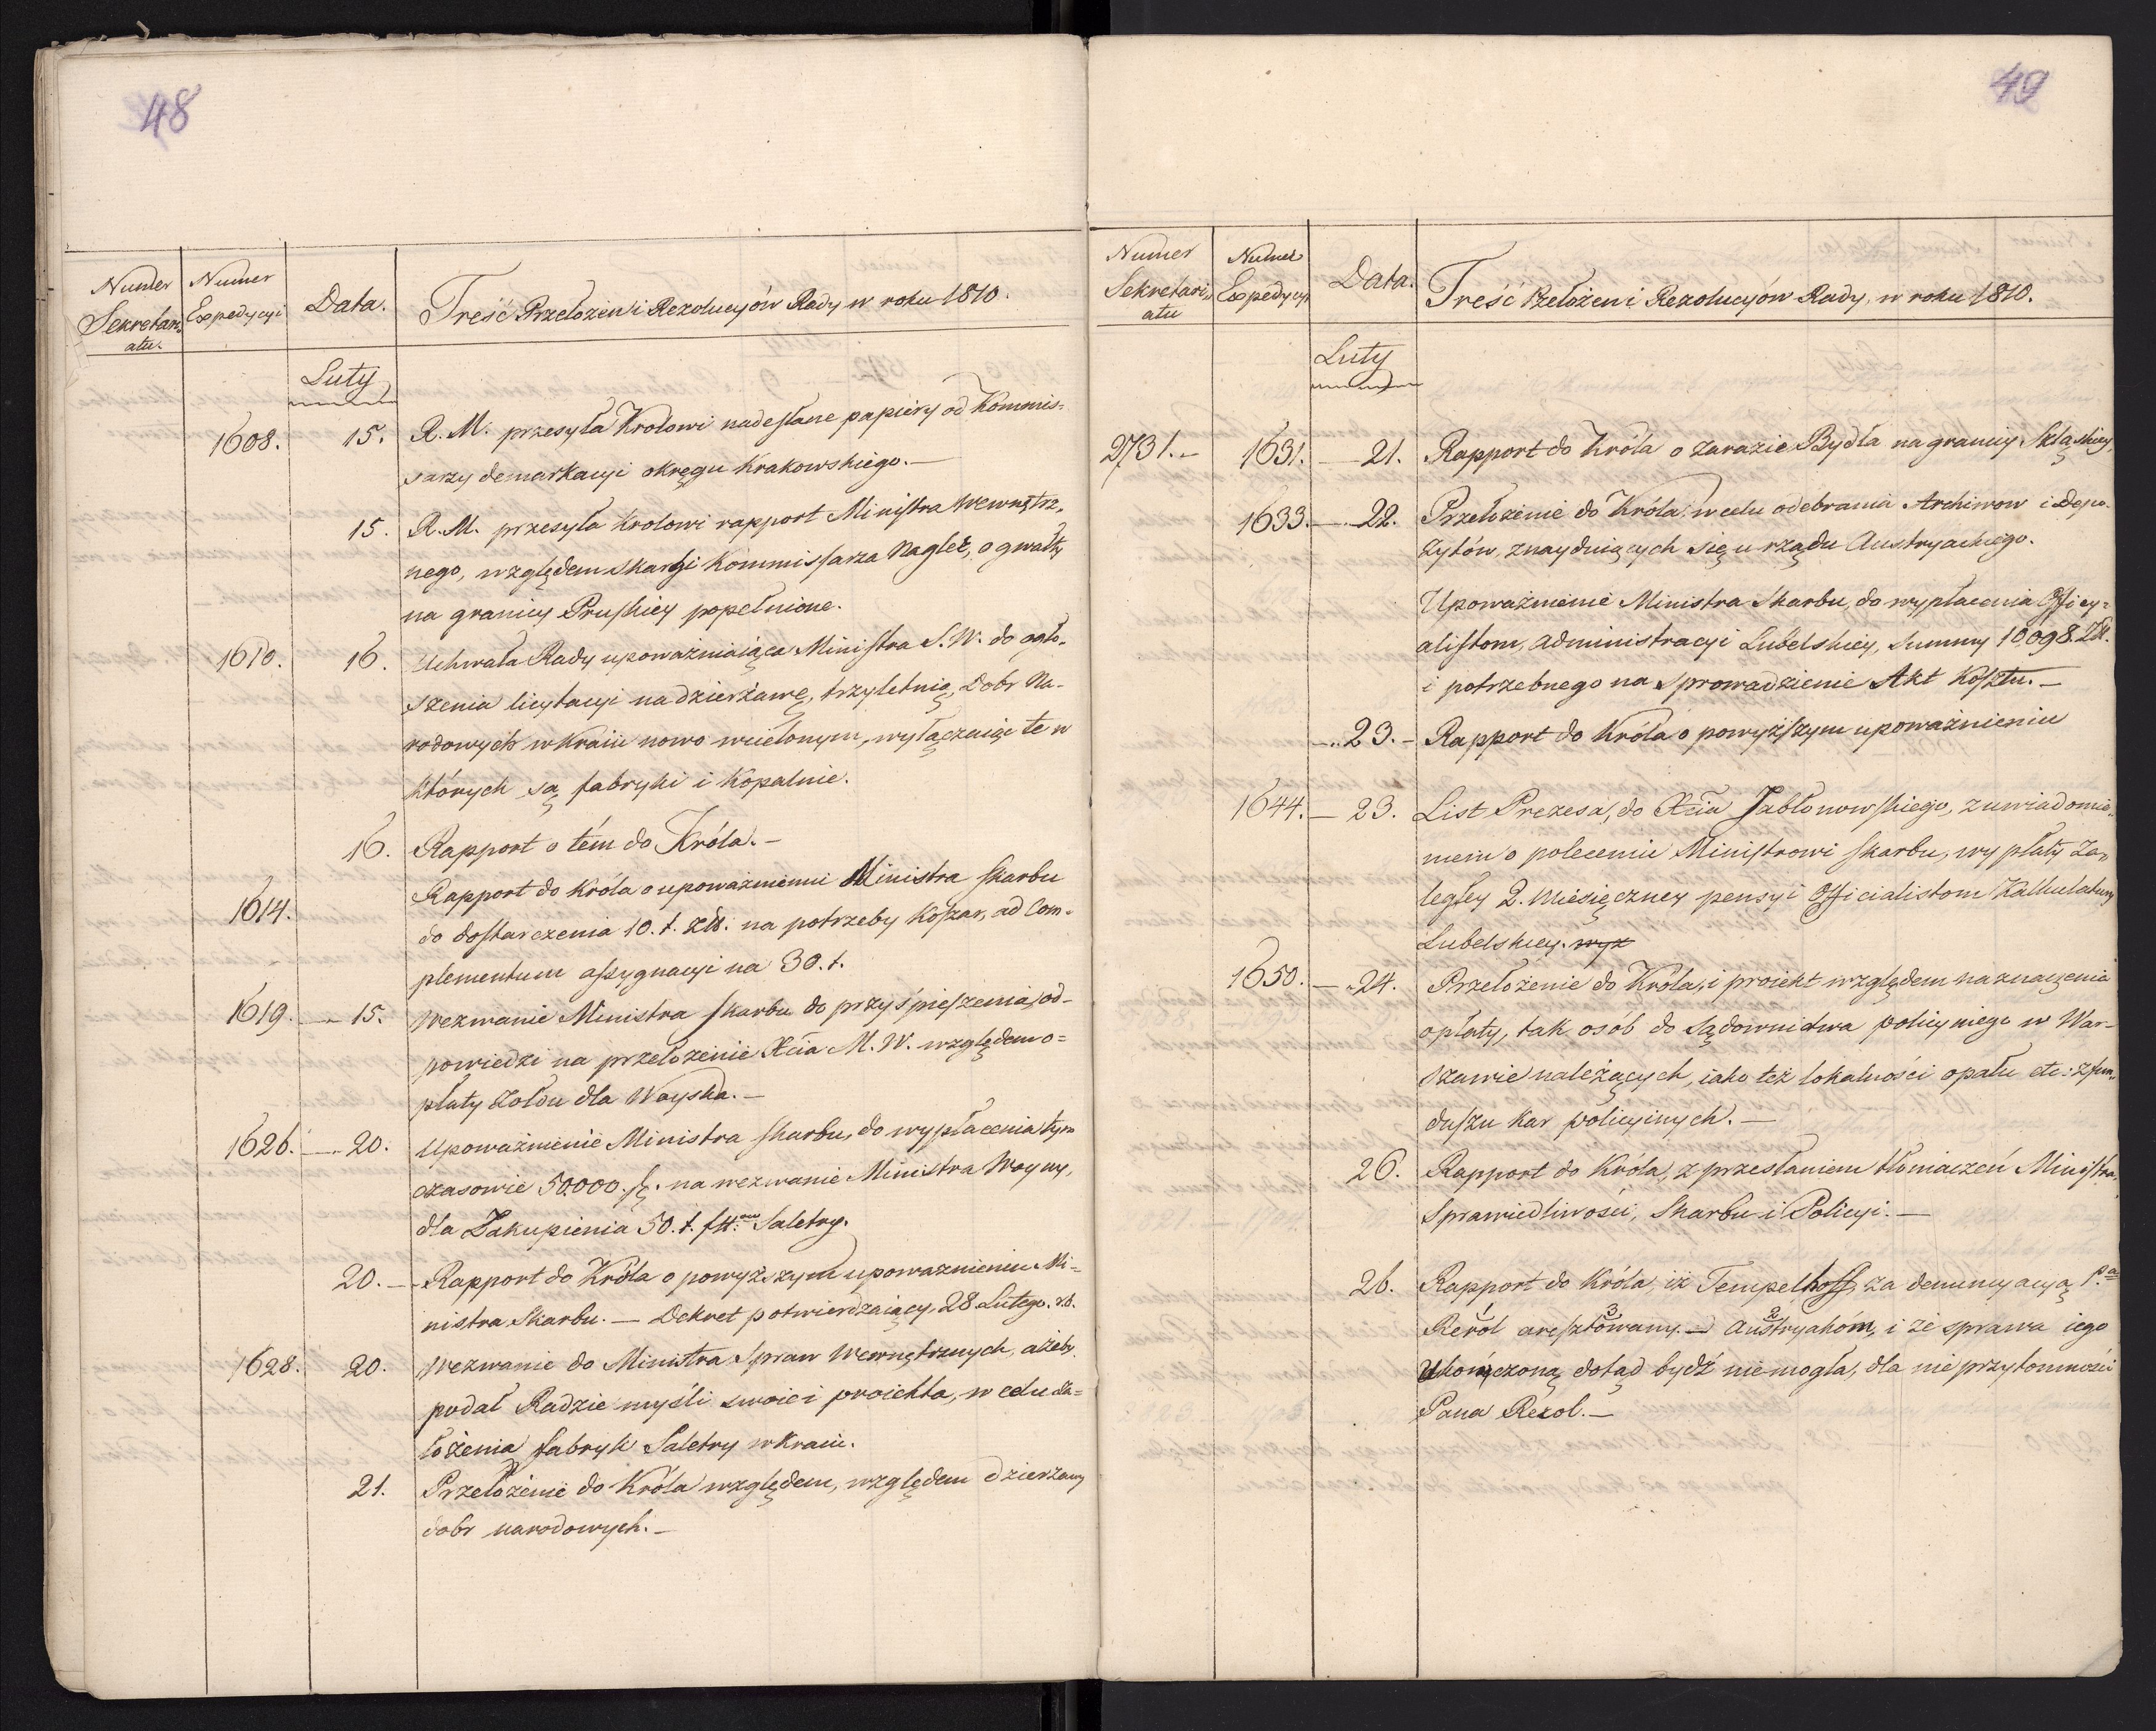 48
Numer Sekretari- atu. Numer Expedycyi Data. Treść Przełożeń i Rezolucyów Rady w roku 1810.
Luty
1608. 15. R. M. przesyła Krolowi nadesłane papiery od Kommis=
sarzy demarkacyi okręgu Krakowskiego. —
15. R. M. przesyła Krolowi rapport Ministra Wewnętrz-
nego, względem skargi Kommissarza Nagler, o gwałty
na granicy Pruskiey popełnione.
1610. 16. Uchwała Rady upoważniaiąca Ministra S. W. do ogło-
szenia licytacyi na dzierżawę, trzyletnią, Dobr Na-
rodowych w Kraiu nowo wcielonym, wyłączaiąc te w
których są fabryki i Kopalnie.
16. Rapport o tém do Króla. —
1614. Rapport do Króla o upoważnieniu Ministra Skarbu
do dostarczenia 10. t. zł. na potrzeby Koszar, ad Com-
plementum assygnacyi na 30. t.
1619. — 15. Wezwanie Ministra Skarbu do przyśpieszenia, od-
powiedzi na przełożenie Xcia M. W. względem o=
płaty żołdu dla Woyska. —
1626. — 20. Upoważnienie Ministra Skarbu, do wypłacenia tym
czasowie 50,000. na wezwanie Ministra Woyny,
dla Zakupienia 50. t. Saletry.
20. — Rapport do Króla o powyższym upoważnieniu Mi=
nistra Skarbu. — Dekret potwierdzaiący, 28 Lutego. r.b.
1628. 20. Wezwanie do Ministra Spraw Wewnętrznych, ażeby
podał Radzie myśli swoie i proiekta, w celu za=
łożenia fabryk Saletry w Kraiu.
21. Przełożenie do Króla względem, względem dzierżawy
dobr narodowych. —
49
Numer Sekretari- atu Numer Expedycyi Data. Treść Przełożeń i Rezolucyów Rady, w roku 1810.
Luty
2731. — 1631. — 21. Rapport do Króla o zarazie Bydła na granicy Szląskiey,
1633. — 22. Przełożenie do Króla, w celu odebrania Archiwow i Depo-
zytów, znayduiących się u rządu Austryackiego.
Upoważnienie Ministra Skarbu, do wypłacenia Officy=
alistom, Administracyi Lubelskiey, Summy 10,098. Zł.
i potrzebnego na sprowadzenie Akt Kosztu. —
— 23. — Rapport do Króla o powyższym upoważnieniu
1644. — 23. List Prezesa, do Xcia Jabłonowskiego, z uwiadomie-
niem o poleceniu Ministrowi Skarbu, wypłaty za-
ległey 2. Miesięczney pensyi Officialistom Kalkulatury
Lubelskiey. wyz
1650. — 24. Przełożenie do Króla, i proiekt względem naznaczenia
opłaty, tak osób do sądownictwa policyinego w War-
szawie należących, iako też lokalności opału etc: z fun-
duszu kar policyinych. —
26. Rapport do Króla, z przesłaniem tłómaczeń Ministra,
Sprawiedliwości, Skarbu i Policyi. —
26. Rapport do Króla, iż Tempelhoff, za denuncyacyą Pa
1 3 2
Rerol aresztowany — Austryakóm, i że sprawa iego
Ukończoną dotąd bydź nie mogła, dla nie przytomności
Pana Rezol. —